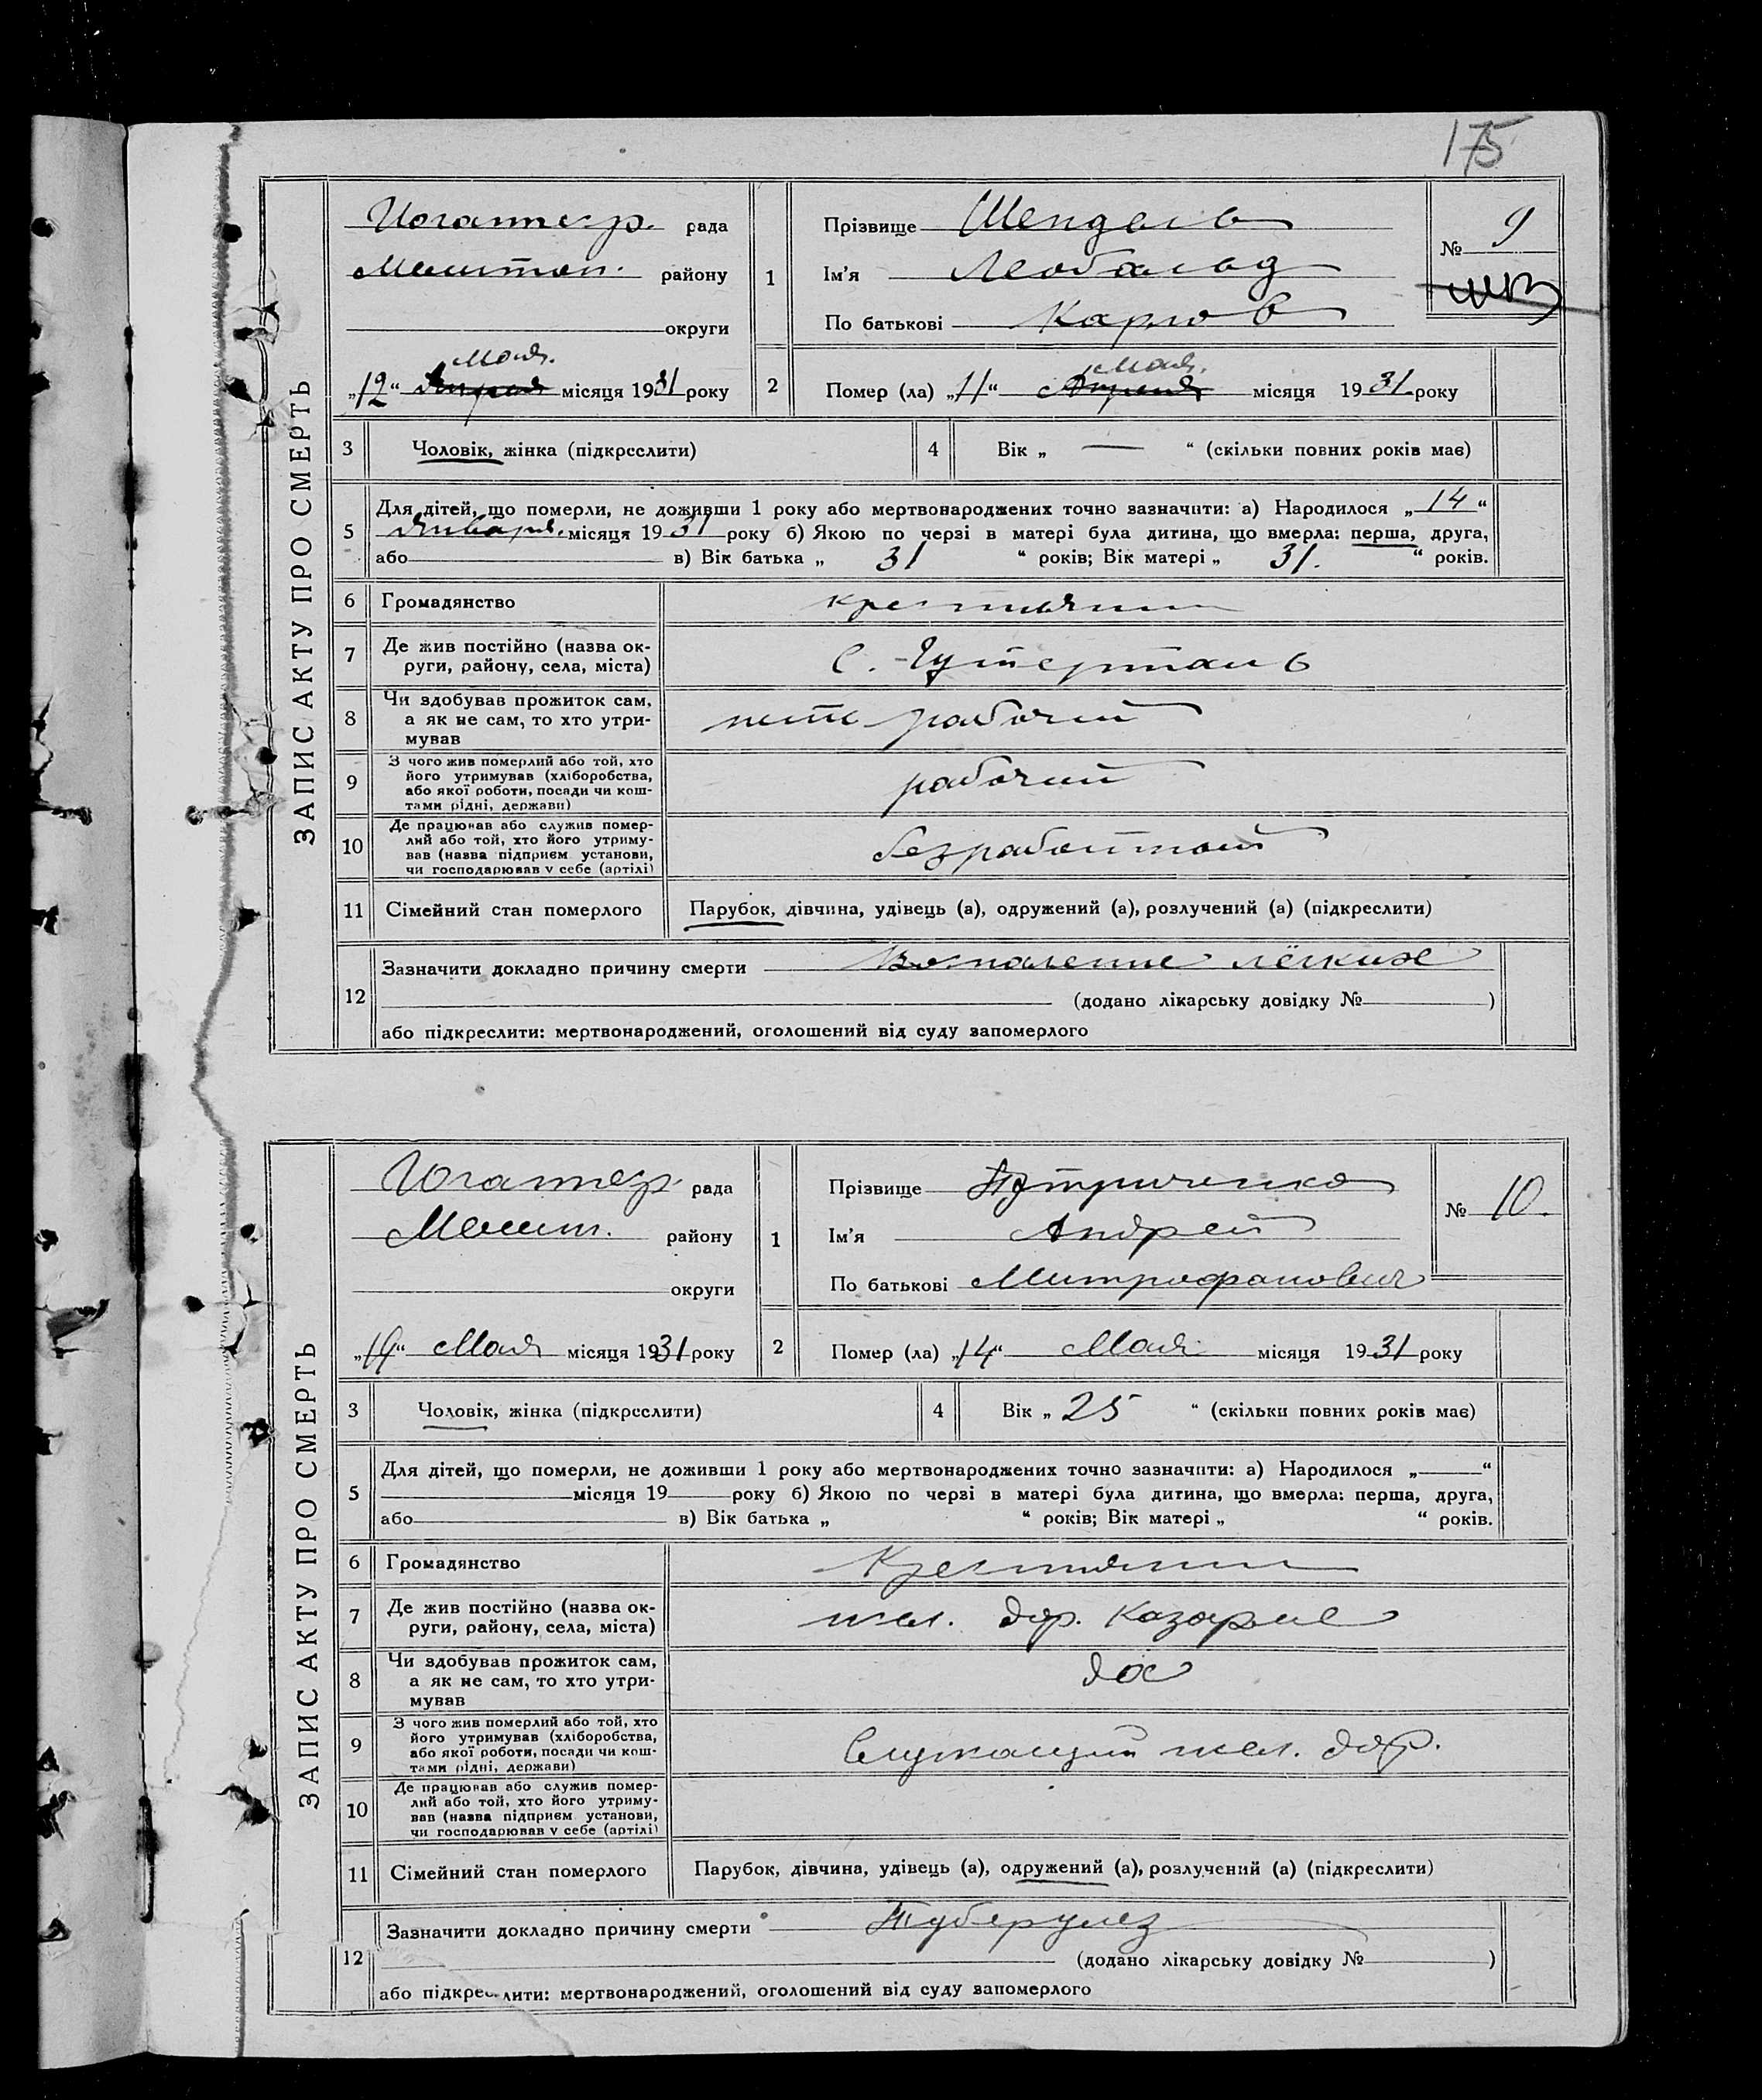 175
ЗАПИС АКТУ ПРО СМЕРТЬ
рада
району
округи
„12“ Апреля Мая. місяця 1931 року
1
Прізвище Шендель
Ім’я Леобальд
По батькові Карлов
№ 9
2
Помер (ла) „11“ Апреля Мая. місяця 1931. року
3
Чоловік, жінка (підкреслити)
4
Вік „ — “ (скільки повних років має)
5
Для дітей, що померли, не доживши 1 року або мертвонароджених точно зазначити: а) Народилося „14“
Января. місяця 1931 року б) Якою по черзі в матері була дитина, що вмерла: перша, друга,
або в) Вік батька „ 31 “ років; Вік матері „ 31. “ років.
6
Громадянство
крестьянин
7
Де жив постійно (назва ок-
руги, району, села, міста)
с. Гутерталь
8
Чи здобував прожиток сам,
а як не сам, то хто утри-
мував
рабочий
9
З чого жив померлий або той, хто
його утримував (хліборобства,
або якої роботи, посади чи кош-
тами рідні, держави)
рабочий
10
Де працював або служив помер-
лий або той, хто його утриму-
вав (назва підприєм. установи,
чи господарював у себе (артілі)
безработный
11
Сімейний стан померлого
Парубок, дівчина, удівець (а), одружений (а), розлучений (а) (підкреслити)
12
Зазначити докладно причину смерти Воспаление лёгких
(додано лікарську довідку № )
або підкреслити: мертвонароджений, оголошений від суду запомерлого
ЗАПИС АКТУ ПРО СМЕРТЬ
рада
району
округи
„14“ Мая місяця 1931 року
1
Прізвище
Ім’я Андрей
По батькові Митрофанович
№ 10.
2
Помер (ла) „14“ Мая місяця 1931 року
3
Чоловік, жінка (підкреслити)
4
Вік „ 25 “ (скільки повних років має)
5
Для дітей, що померли, не доживши 1 року або мертвонароджених точно зазначити: а) Народилося „ “
місяця 19 року б) Якою по черзі в матері була дитина, що вмерла: перша, друга,
або в) Вік батька „ “ років; Вік матері „ “ років.
6
Громадянство
Крестьянин
7
Де жив постійно (назва ок-
руги, району, села, міста)
жел. дор. Казарме
8
Чи здобував прожиток сам,
а як не сам, то хто утри-
мував
да
9
З чого жив померлий або той, хто
його утримував (хліборобства,
або якої роботи, посади чи кош-
тами рідні, держави)
Служащий жел. дор.
10
Де працював або служив помер-
лий або той, хто його утриму-
вав (назва підприєм. установи,
чи господарював у себе (артілі)
11
Сімейний стан померлого
Парубок, дівчина, удівець (а), одружений (а), розлучений (а) (підкреслити)
12
Зазначити докладно причину смерти Туберулез
(додано лікарську довідку № )
або підкреслити: мертвонароджений, оголошений від суду запомерлого